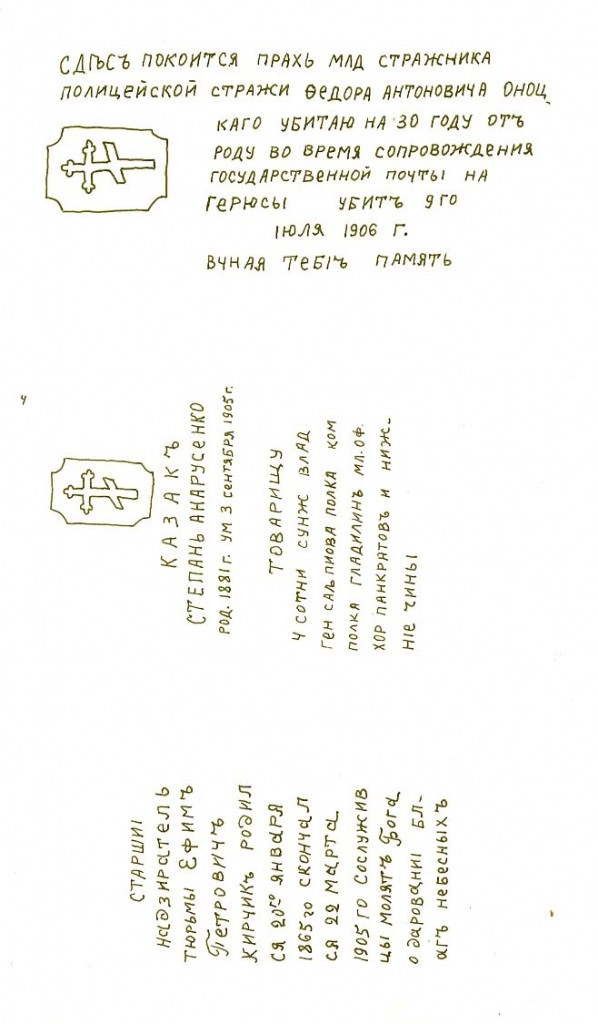 СДѢСЪ ПОКОИТСЯ ПРАХЬ МЛД СТРАЖНИКА
ПОЛИЦЕЙСКОЙ СТРАЖИ ѲЕДОРА АНТОНОВИЧА ОНОЦ
КАГО УБИТАЮ НА 30 ГОДУ ОТЪ
РОДУ ВО ВРЕМЯ СОПРОВОЖДЕНИЯ
ГОСУДАРСТВЕННОЙ ПОЧТЫ НА
ГЕРЮСЫ УБИТЪ 9ГО
ІЮЛЯ 1906 Г.
ВЧНАЯ ТЕБѢ ПАМЯТЬ
Ч
КАЗАКЪ
СТЕПАНЬ АНАРУСЕНКО
РОД. 1881 Г. УМ 3 СЕНТЯБРЯ 1905 Г.
ТОВАРИЩУ
Ч СОТНИ СУНЖ ВЛАД
ГЕН САЛЬПИОВА ПОЛКА КОМ
ПОЛКА ГЛАДИЛИНЪ МЛ.ОФ.
ХОР ПАНКРАТОВЪ И НИЖ-
НІЕ ЧИНЫ
СТАРШИІ
НАДЗИРАТЕЛЬ
ТЮРЬМЫ ЕФИМЪ
ПЕТРОВИЧЪ
КИРЧИКЪ РОДИЛ
СЯ 20ГО ЯНВАРЯ
1865ГО СКОНЧАЛ
СЯ 22 МАРТА
1905 ГО СОСЛУЖИВ
ЦЫ МОЛЯТЪ БОГА
О ДАРОВАНІ БЛ-
АГЪ НЕБЕСНЫХЪ